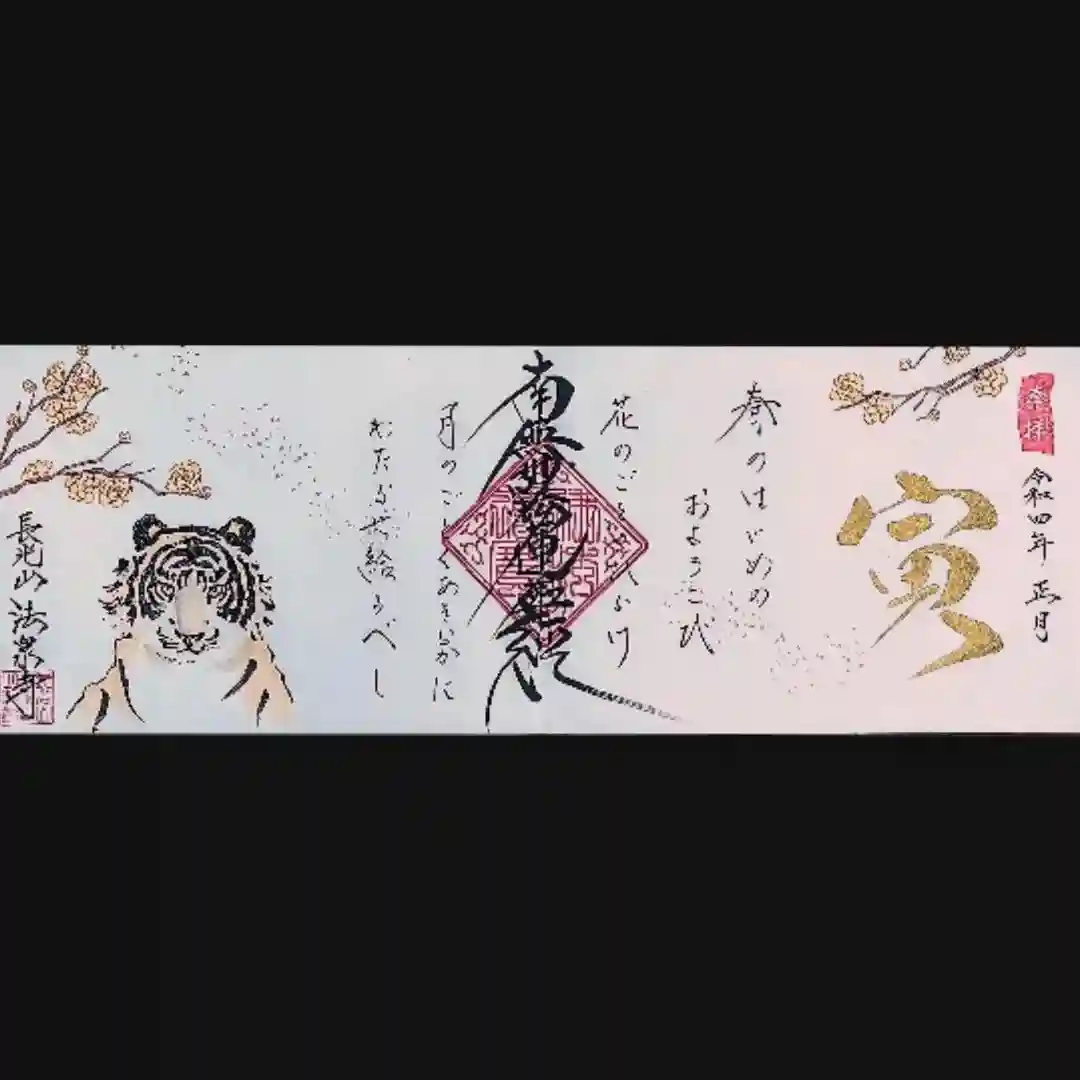 奉拝
令和四年 正月
寅
春のはじめの
およろこび
花のごとくひらけ
南無妙法蓮華経
月のごとくあきらかに
わたらせ給うべし
法泉寺